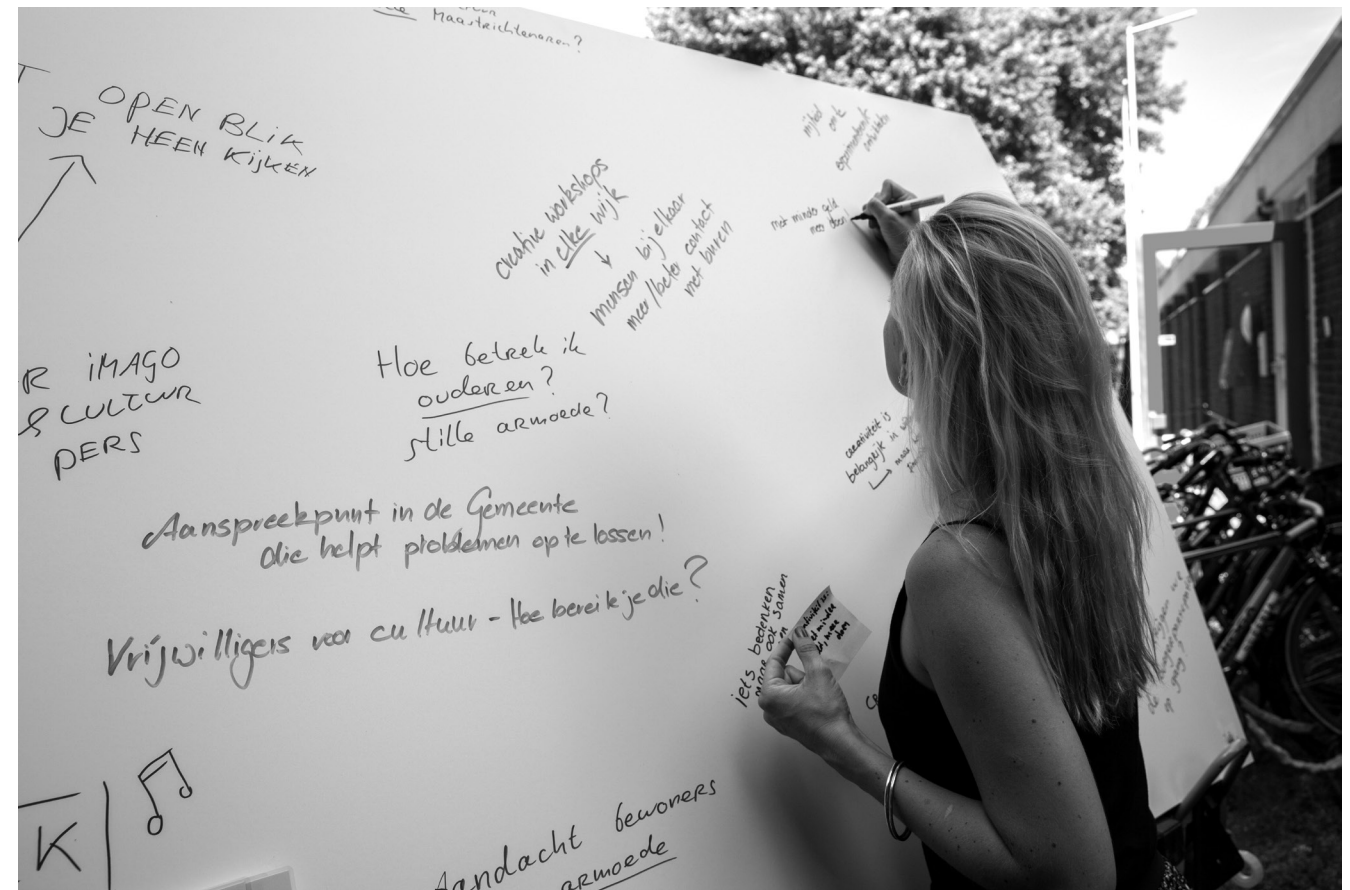 Maastrichtenaren?
JE OPEN BLIK
HEEN KIJKEN
creative workshops
in elke wijk
↓
mensen bij elkaar
meer/beter contact
met buren
met minder geld
meer doen
R IMAGO
& CULTUUR
PERS
Hoe betrek ik
ouderen?
stille armoede?
creativiteit is
belangrijk in
Aanspreekpunt in de Gemeente
die helpt problemen op te lossen!
Vrijwilligers voor cultuur - Hoe bereik je die?
iets bedenken
maar ook samen
K
Aandacht bewoners
armoede